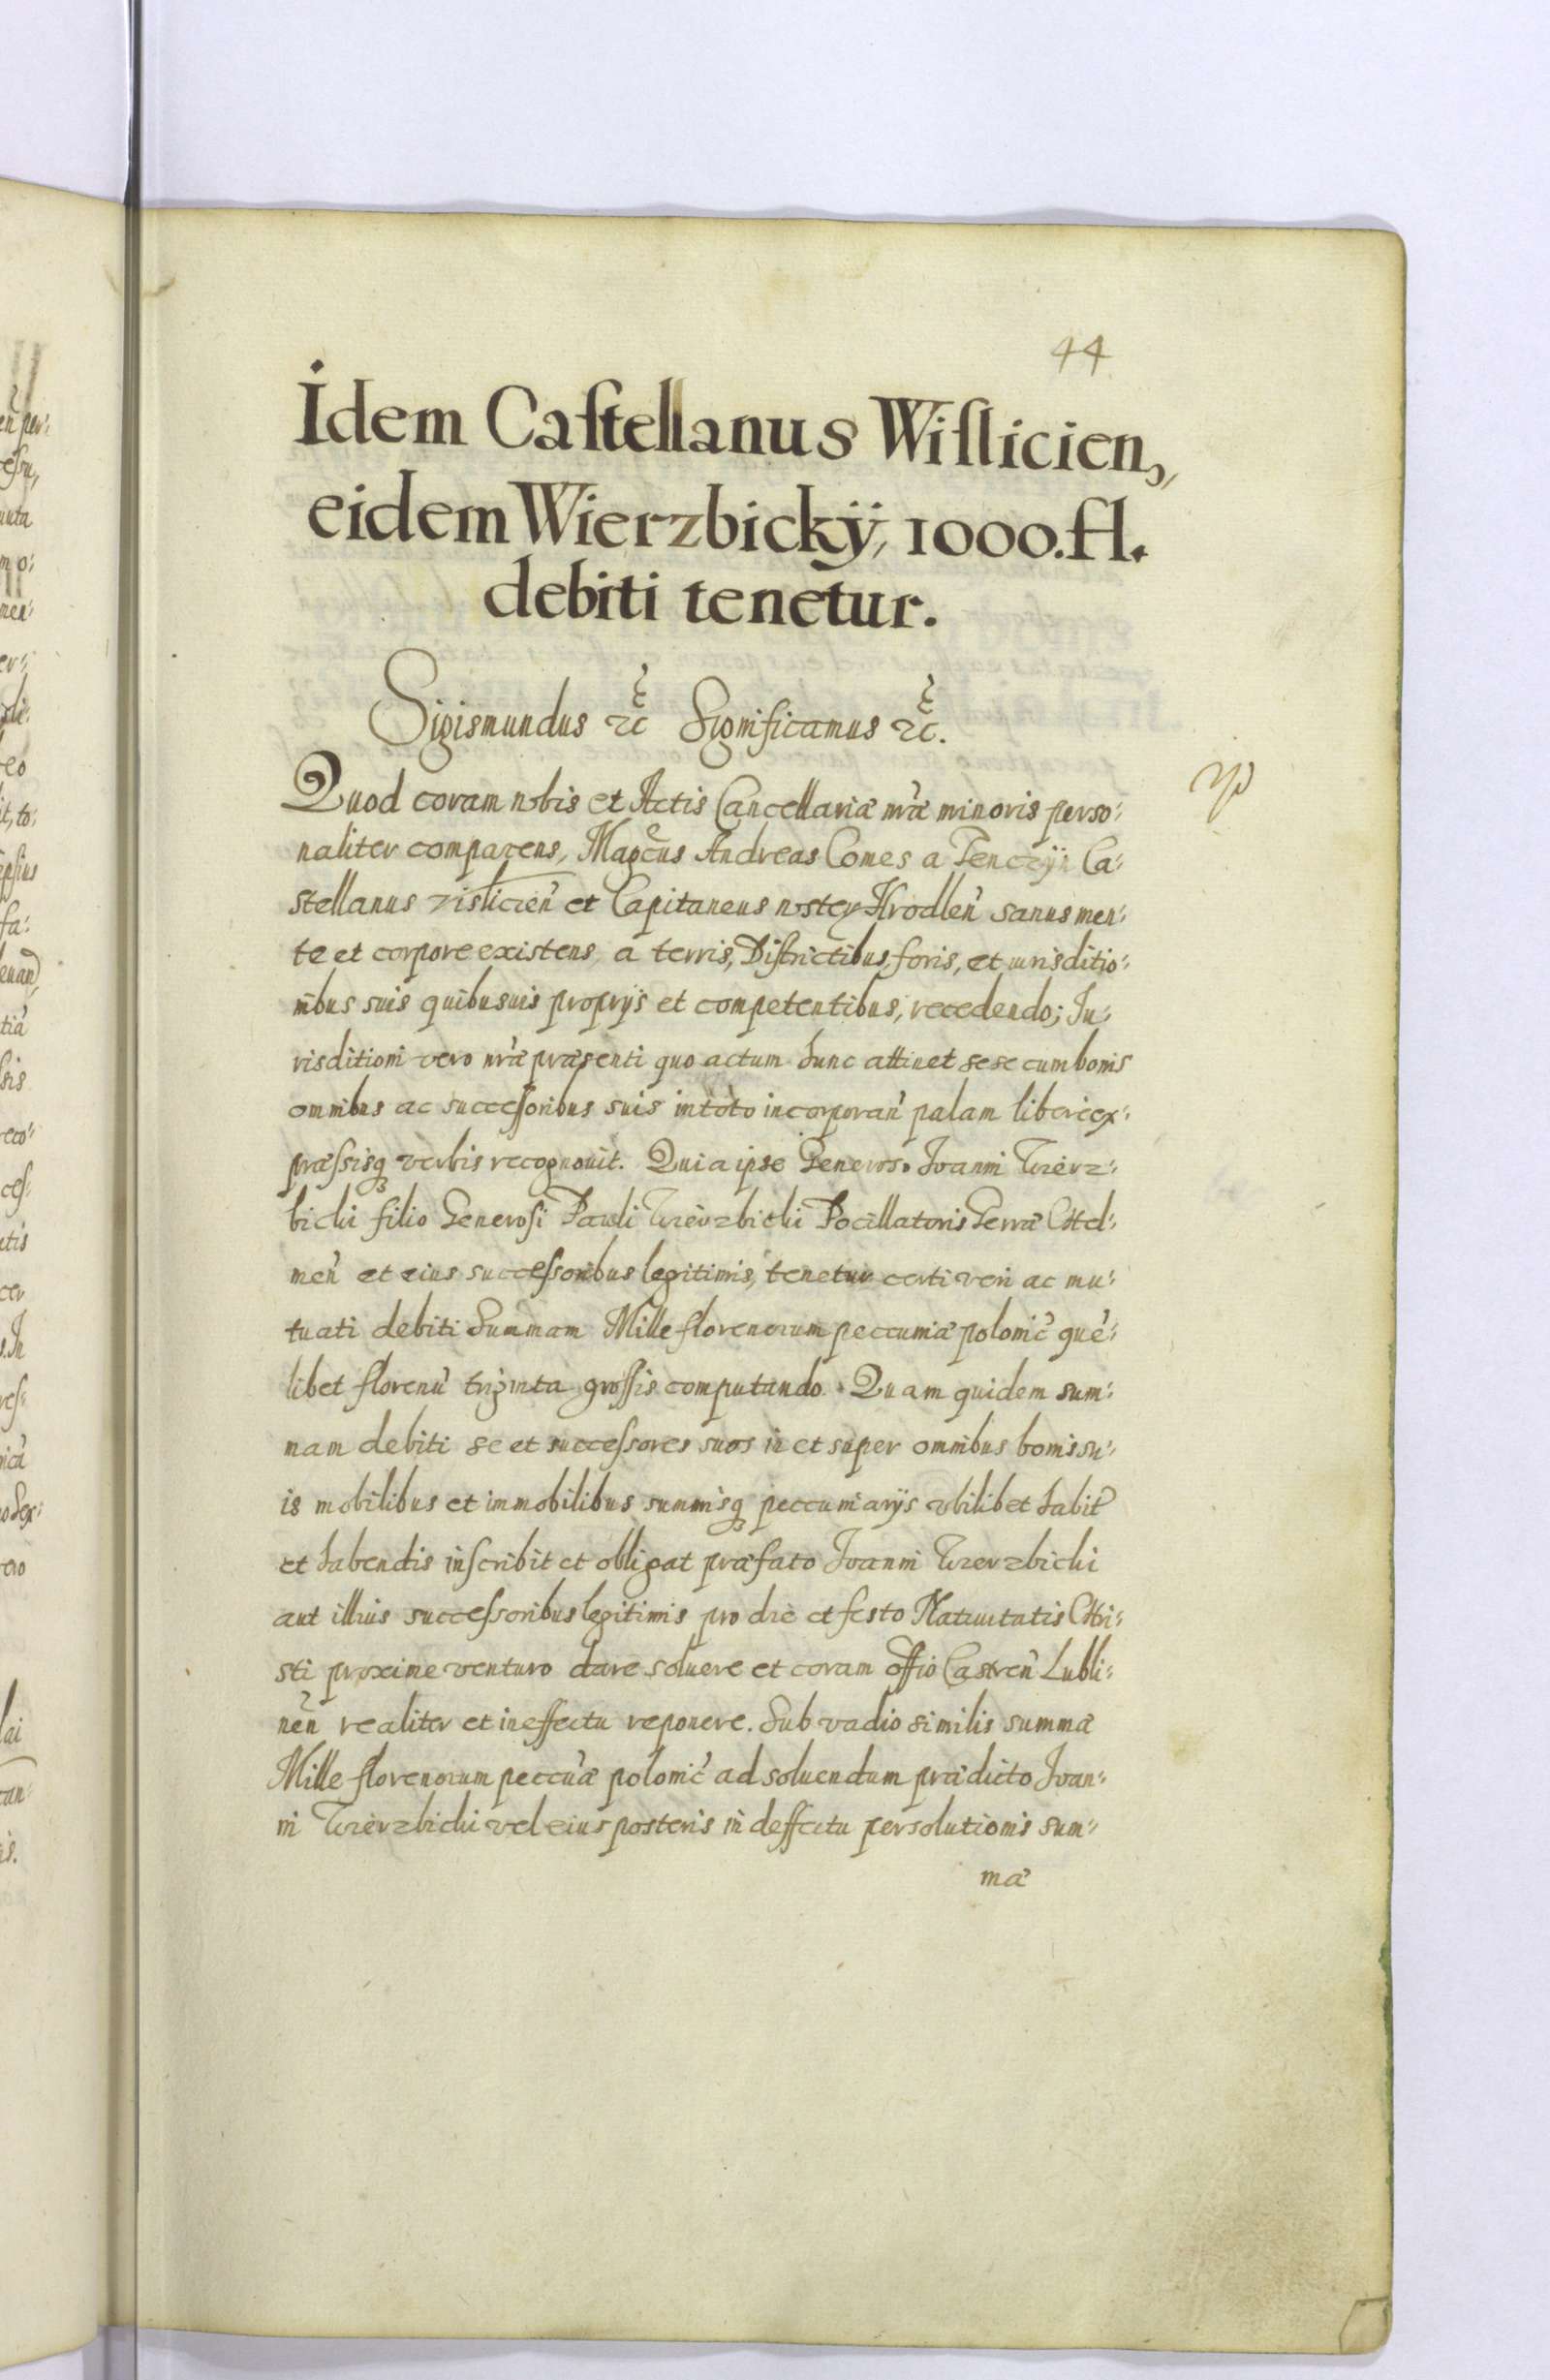 44
Idem Castellanus Wislicien,
eidem Wierzbickÿ, 1000. fl.
debiti tenetur.
Sigismundus etc̃ Significamus etc̃.
Quod coram nobis et Actis Cancellariæ nr̃æ minoris perso:
naliter comparens, Magcus Andreas Comes a Tenczÿn Ca:
stellanus visliciẽn et Capitaneus noster Hrodlen̄ sanus men:
te et corpore existens, a terris, Districtibus, foris, et iurisditio:
nibus suis quibusuis proprÿs et competentibus, recedendo; Iu:
risditioni vero nr̃æ præsenti quo actum hunc attinet sese cum bonis
omnibus ac successoribus suis in toto incorporan̄ palam libere ex:
præssisq verbis recognouit. Quia ipse Generoso Ioanni Wierz:
bicki filio Generosi Pauli Wierzbicki Pocillatoris Terræ Chel:
men̄ et eius successoribus legitimis, tenetur certi veri ac mu:
tuati debiti summam Mille florenorum peccuniæ polonic̄ quē:
libet florenū triginta grossis computando. Quam quidem sum:
mam debiti se et successores suos in et super omnibus bonis su:
is mobilibus et immobilibus summisq peccuniarÿs vbilibet habit̄
et habendis inscribit et obligat præfato Ioanni Wierzbicki
aut illius successoribus legitimis pro die et festo Natiuitatis Chri:
sti proxime venturo dare soluere et coram offio Castren̄ Lubli:
nen̄ realiter et in effectu reponere. Sub vadio similis summæ
Mille florenorum peccūæ polonic̄ ad soluendum prædicto Ioan:
ni Wierzbicki vel eius posteris in deffectu persolutionis sum:
mæ